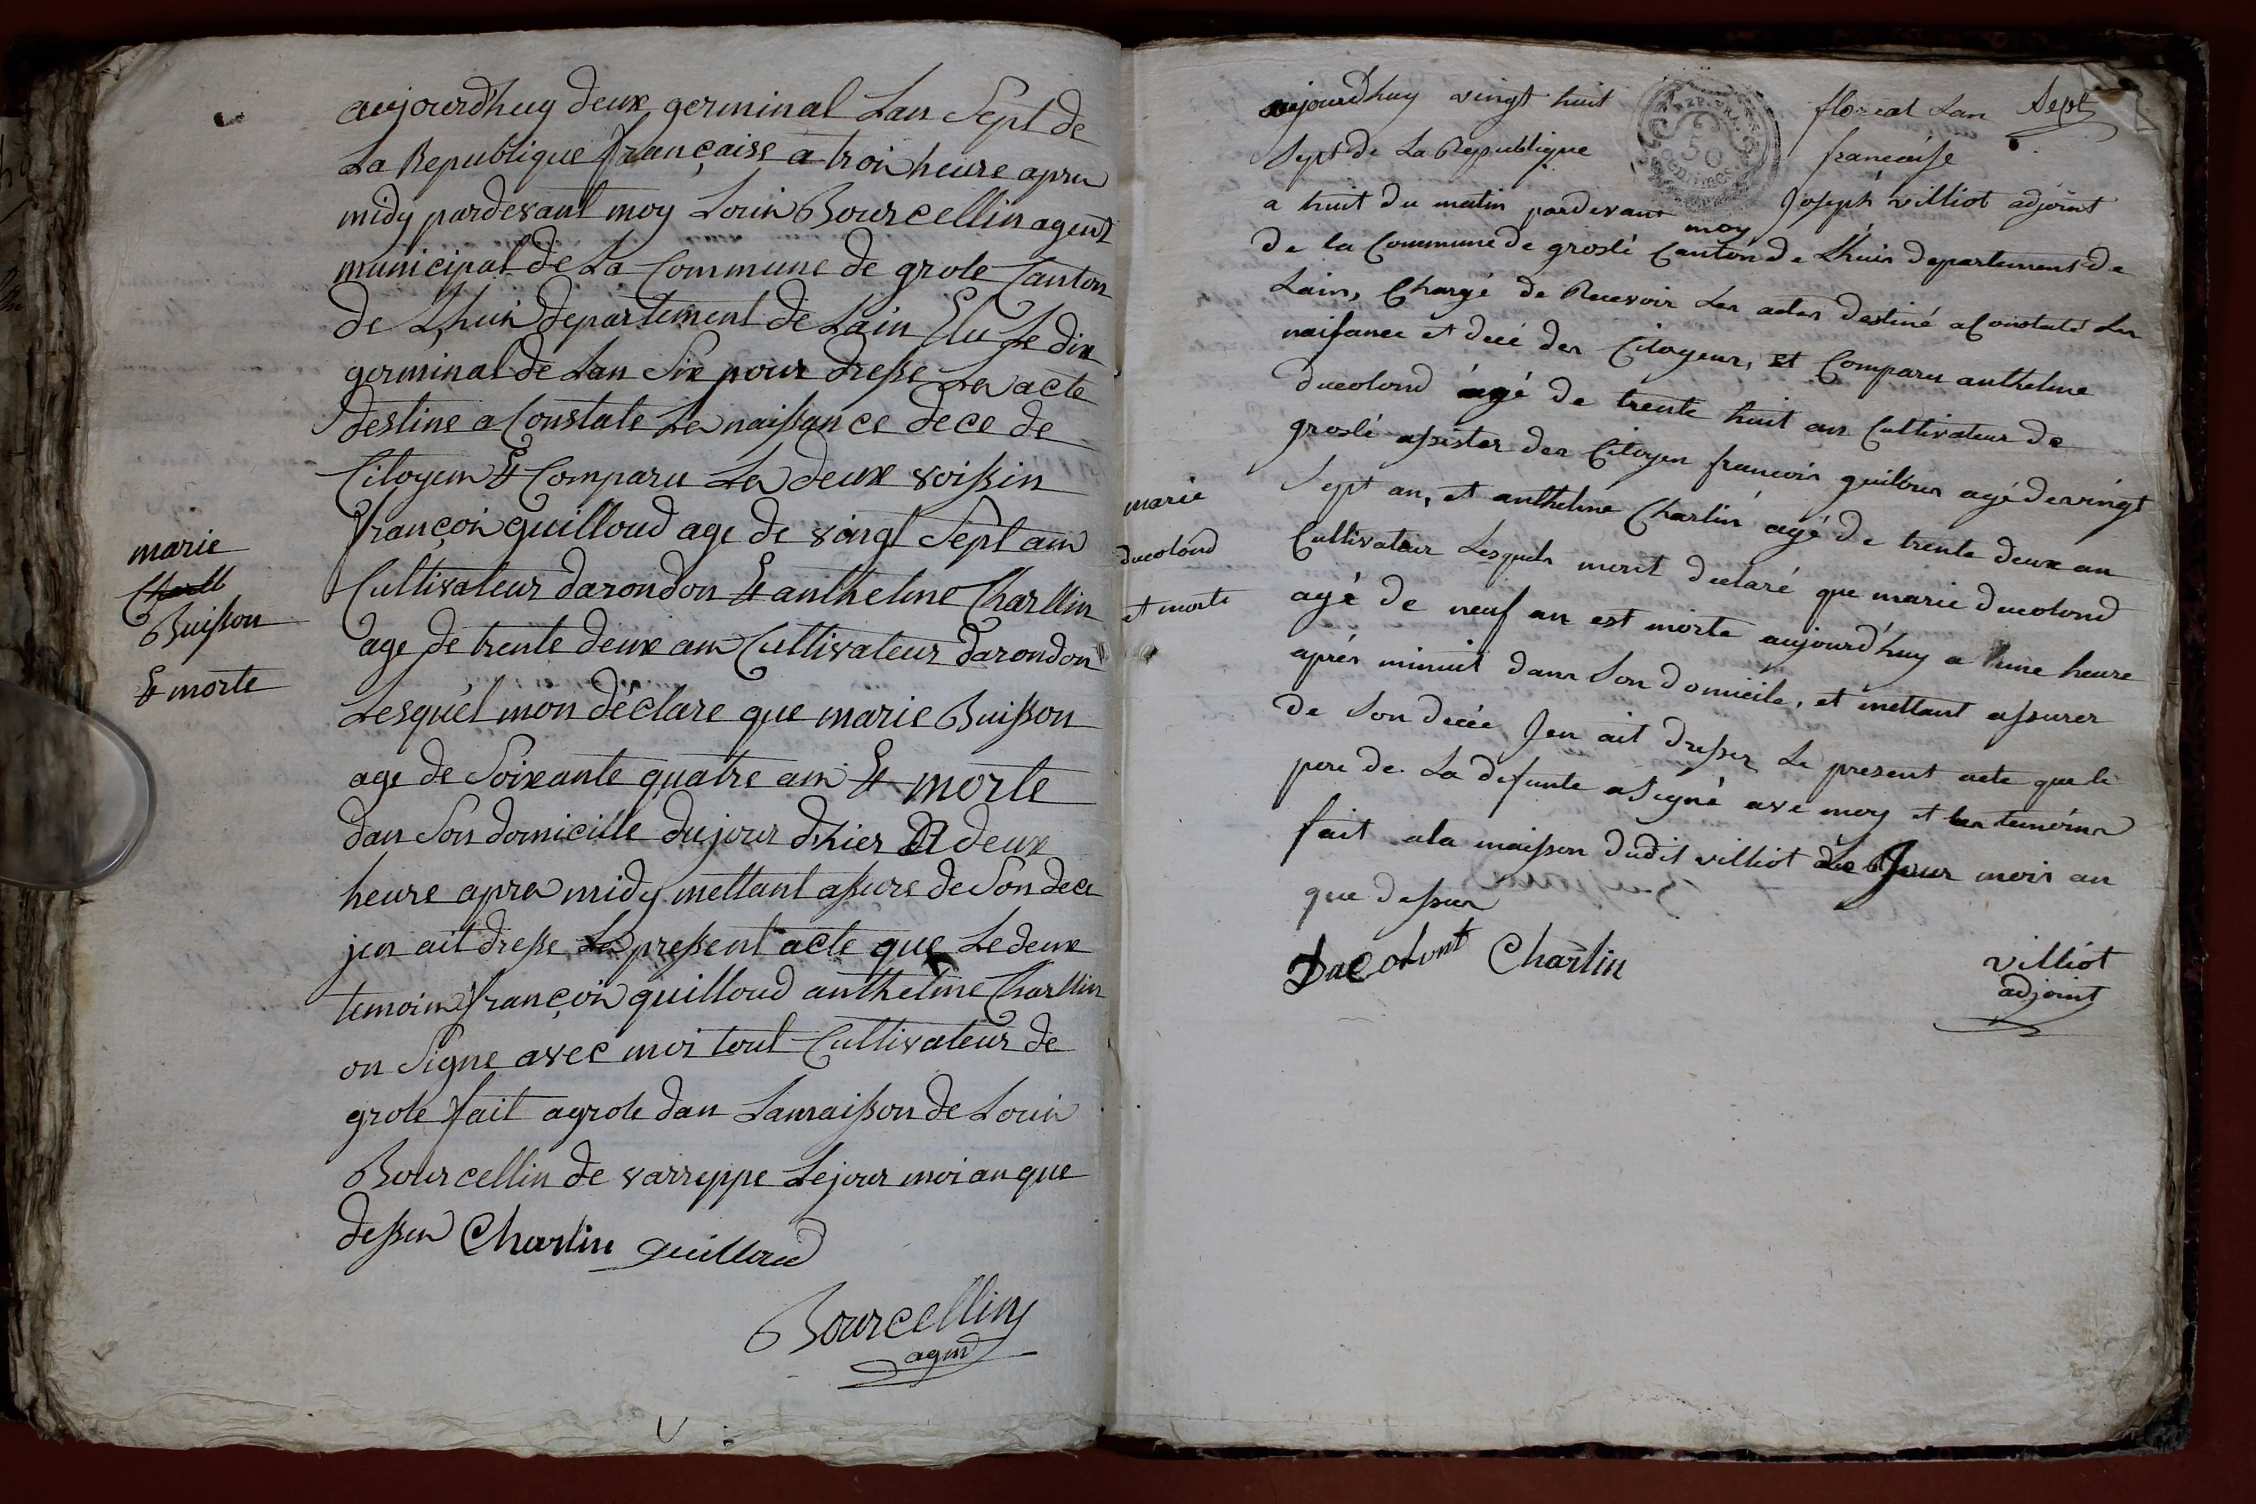 aujourdhuy deux germinal Lan Sept de
La Republique française a troi heure apre
midy pardevant moy Louis Bourcellin agent
municipal de La Commune de grole Canton
de Lhuis departement de Lain Elu Le dix
germinal de Lan Six pour dresse Les acte
destine a Constate Les naissance dece de
Citoyen Et Comparu Les deux voissin
françois guilloud age de vingt Sept ans
Cultivateur darondon Et anthelme Charllin
age de trente deux ans Cultivateur darondon
Lesquel mon déclare que marie Buisson
age de Soixante quatre ans Et morte
dan Son domicille du jour dhier A deux
heure apres midy mettant assure de Son dece
jen ait dresse Le pressent acte que Le deux
temoins françois guilloud anthelme Charllin
on Signe avec moi tout Cultivateur de
grole fait a grole dan La maisson de Louis
Bourcellin de varreppe Le jour moi an que
dessus Charlin guilloud
Bourcellin
agent
marie
Charll
Buisson
Et morte
Sept
aujourdhuy vingt huit floréal Lan
Sept de La Republique francaise
a huit du matin pardevant moy Joseph villiot adjoint
de la Commune de groslé Canton de Lhuis departement de
Lain, Chargé de Recevoir Les actes destiné a Constaté Les
naissance et décé des Citoyens, et Comparu anthelme
ducolond âgé de trente huit ans Cultivateur de
groslé assister des Citoyen francois guilloud agé de vingt
Sept ans, et anthelme Charlin agé de trente deux an
Cultivateur Lesquels mont declaré que marie ducolond
agé de neuf an est morte aujourd'huy a l'une heure
aprés minuit dans Son domicile, et mettant assurer
de Son décée, Jen ait dresser Le present acte que le
pere de La defunte a Signé avé moy et les temoins
fait a la maisson dudit villiot Le Jour mois an
que dessus
DuColont Charlin
villiot
adjoint
marie
ducolond
et morte
50
Centimes